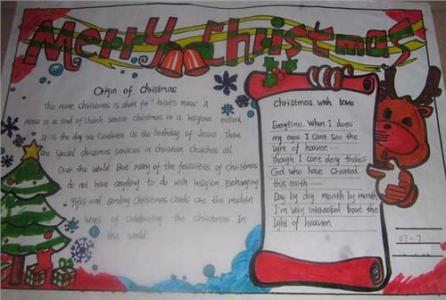 Merry Christmas
Origin of Christmas
The name Christmas is short for "Christ's mass". A
Mass is a kind of church service Christmas is a religious
It is the day we celebrate as the birthday of Jesus. There
are special Christmas services in christian churches all
Over the world. But many of the festivities of christmas
do not have anything to do with religion. Exchanging
gifts and sending christmas cards are the modern
ways of celebrating the christmas in
the world.
christmas with love
Everytime when I does
my eyes I cans see the
light of heaven
Though I cant deny
God who have created
this earth
Day by day month by month
I'm very interested bout the
light of heaven
07-7